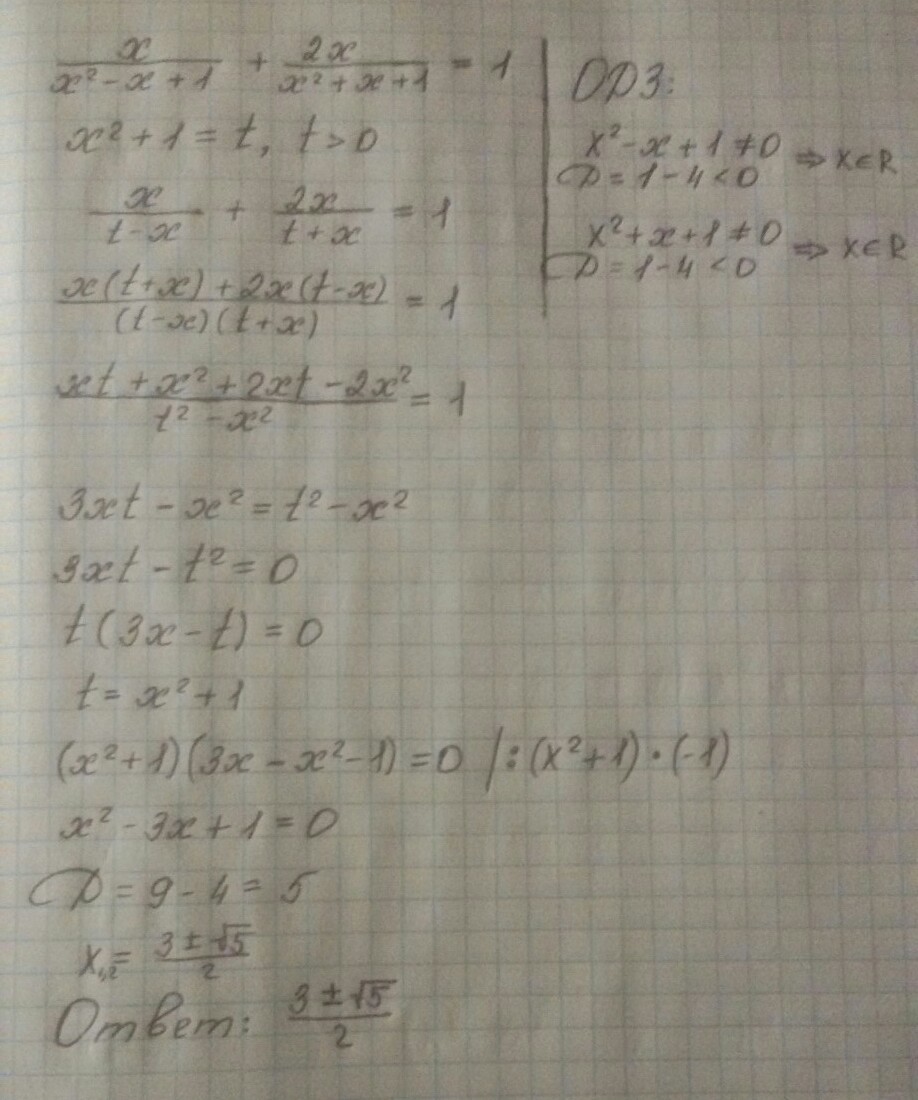 x/(x² - x + 1) + 2x/(x² + x + 1) = 1
x² + 1 = t, t > 0
x/(t - x) + 2x/(t + x) = 1
(x(t + x) + 2x(t - x))/((t - x)(t + x)) = 1
(xt + x² + 2xt - 2x²)/(t² - x²) = 1
3xt - x² = t² - x²
3xt - t² = 0
t(3x - t) = 0
t = x² + 1
(x² + 1)(3x - x² - 1) = 0 |:(x² + 1)·(-1)
x² - 3x + 1 = 0
D = 9 - 4 = 5
x₁,₂ = (3 ± √5)/2
Ответ: (3 ± √5)/2
ОДЗ:
x² - x + 1 ≠ 0
D = 1 - 4 < 0 ⇒ x ∈ R
x² + x + 1 ≠ 0
D = 1 - 4 < 0 ⇒ x ∈ R